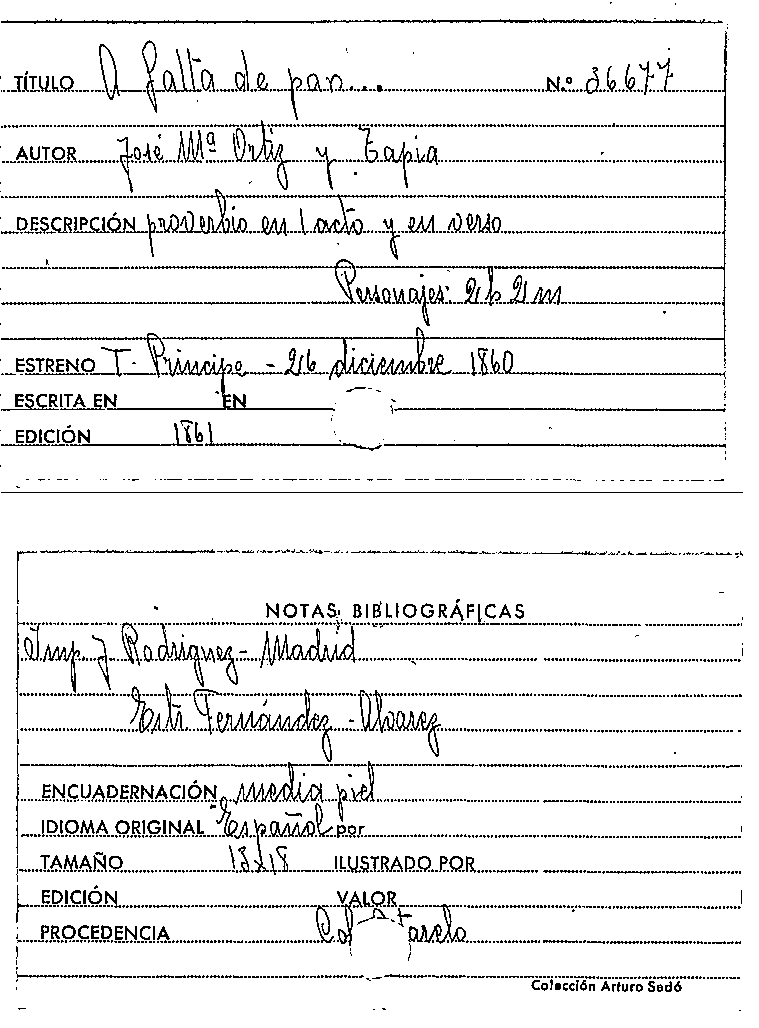 TÍTULO A falta de pan... N.º 36677
AUTOR José Mª Ortiz y Tapia
DESCRIPCIÓN proverbio en 1 acto y en verso
Personajes: 2 h 2 m
ESTRENO T. Principe - 26 diciembre 1860
ESCRITA EN EN
EDICIÓN 1861
NOTAS BIBLIOGRÁFICAS
Imp. J Rodriguez - Madrid
Estr Fernández - Alvarez
ENCUADERNACIÓN media piel
IDIOMA ORIGINAL Español por
TAMAÑO 13x18 ILUSTRADO POR
EDICIÓN VALOR
PROCEDENCIA
Colección Arturo Sedó